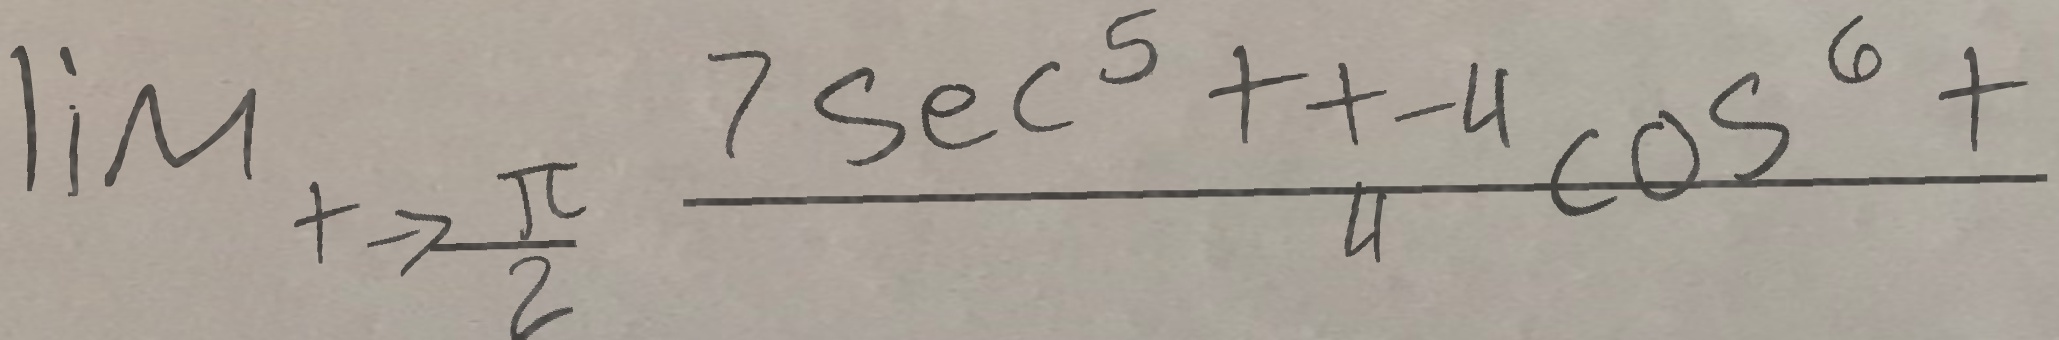 lim t→π/2 (7 sec^5 t + -4 cos^6 t)/4